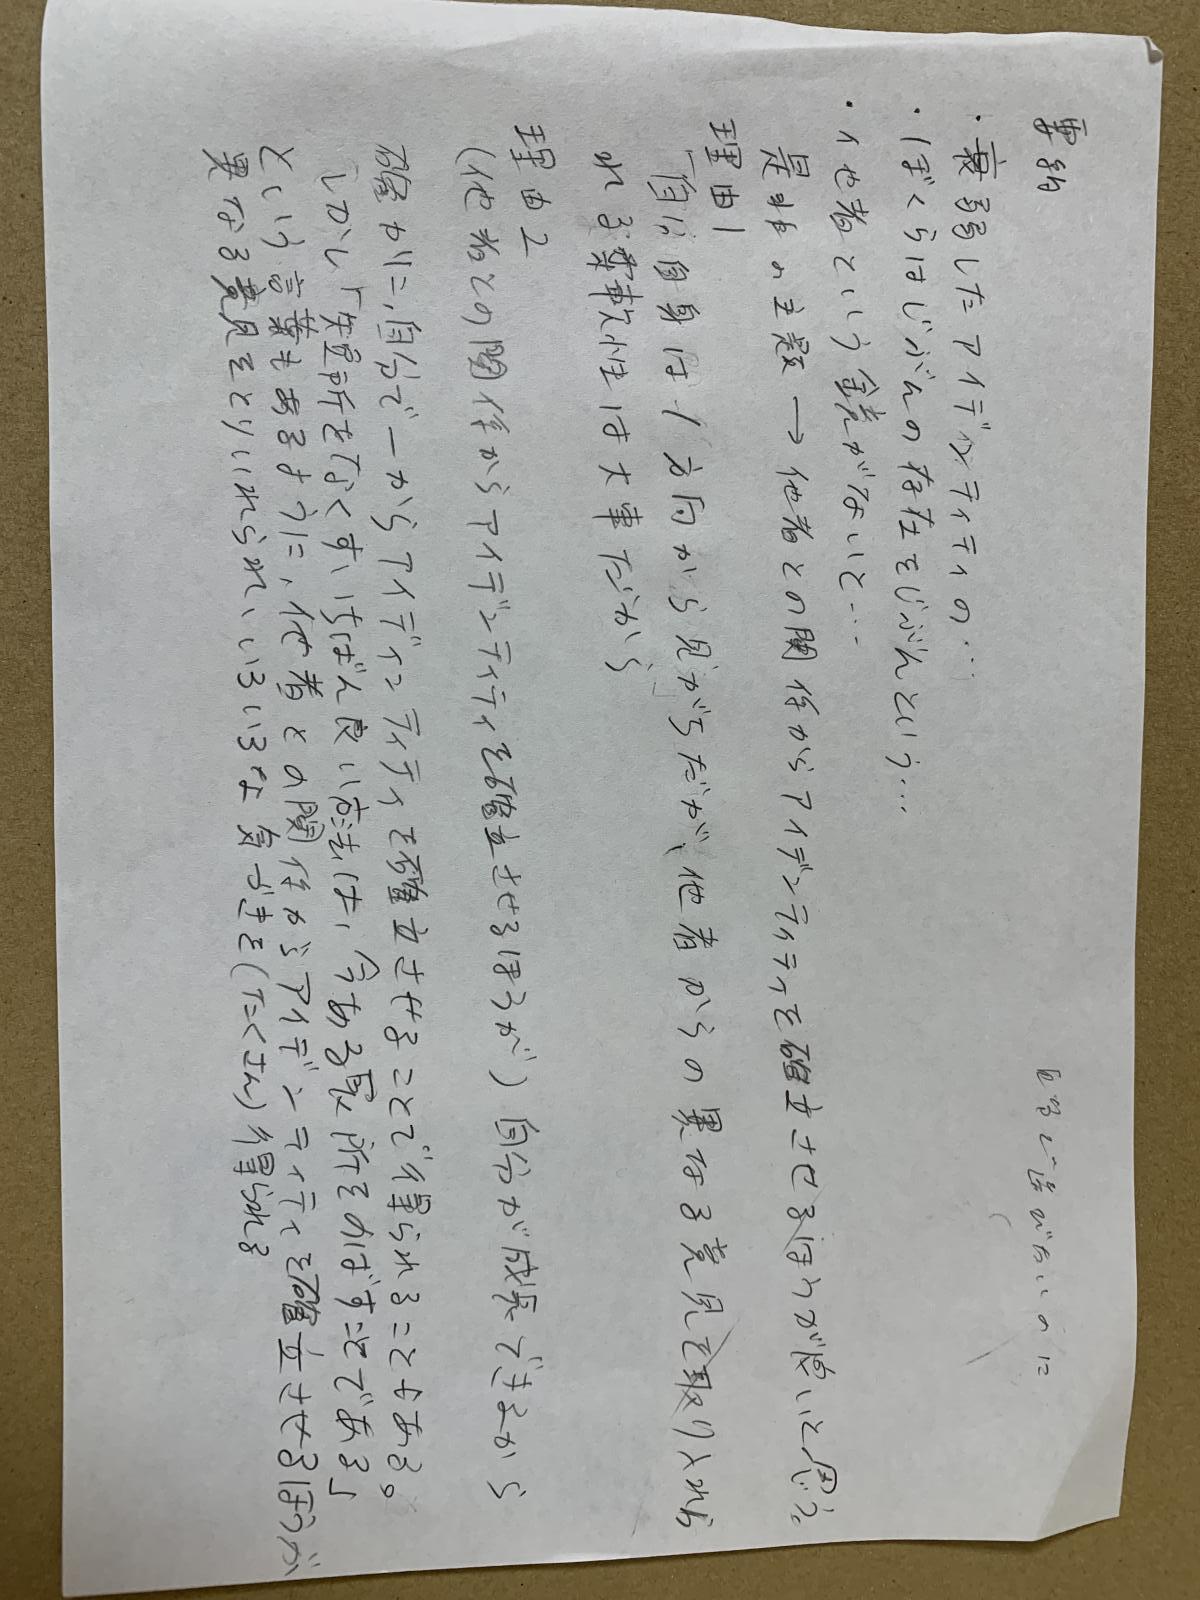 要約
・衰弱したアイデンティティの…
・ぼくらはじぶんの存在をじぶんという…
・他者という鏡がないと…
是非の主題→他者との関係からアイデンティティを確立させるほうが良いと思う。
理由1
「自分自身は1方向から見がちだが、他者からの異なる意見を取り入れら
れる柔軟性は大事だから
理由2
(他者との関係からアイデンティティを確立させるほうが)自分が成長できるから
確かに、自分で一からアイデンティティを確立させることで得られることもある。
しかし「短所をなくすいちばん良い方法は、今ある長所をのばすことである」
という言葉もあるように、他者との関係からアイデンティティを確立させるほうが
異なる意見をとりいれられ、いろいろな気づきを(たくさん)得られる